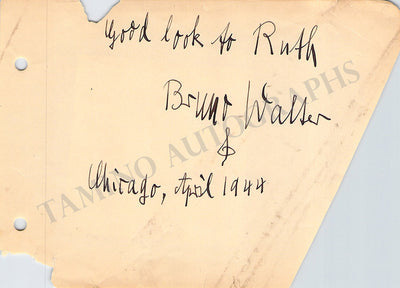 Good look to Ruth
Bruno Walter
Chicago, April 1944
TAMINO AUTOGRAPHS